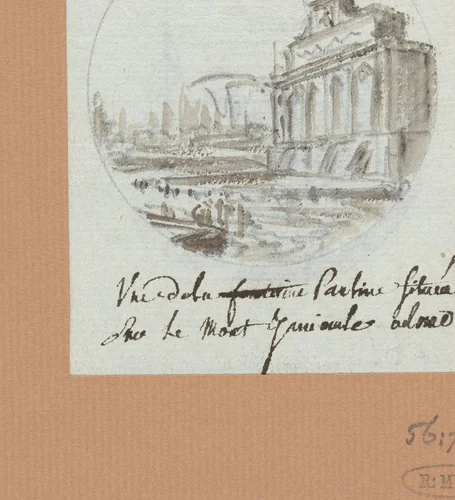 Vue de la fontaine Pauline située
sur le Mont Janicule
56:7
R:M